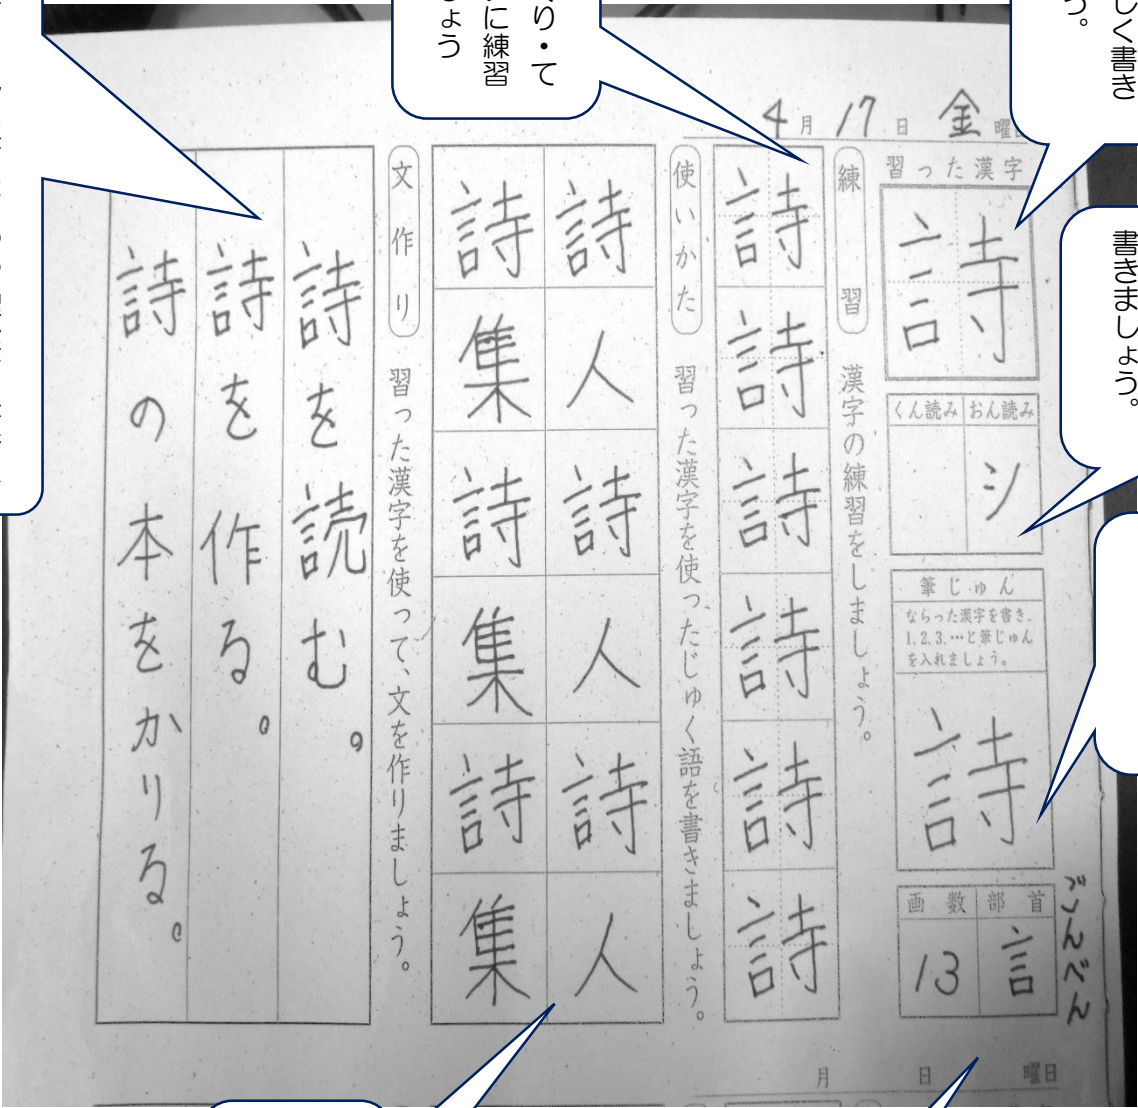 しく書き
う。
書きましょう。
り・て
に練習
しょう
4月17日金曜日
習った漢字
詩
おん読み
シ
くん読み
筆じゅん
ならった漢字を書き、
1.2.3.…と筆じゅん
を入れましょう。
詩
部首
言
ごんべん
画数
13
練習 漢字の練習をしましょう。
詩詩詩詩詩詩
使いかた 習った漢字を使ったじゅく語を書きましょう。
詩人詩人詩人
詩集詩集詩集
文作り 習った漢字を使って、文を作りましょう。
詩を読む。
詩を作る。
詩の本をかりる。
月 日 曜日